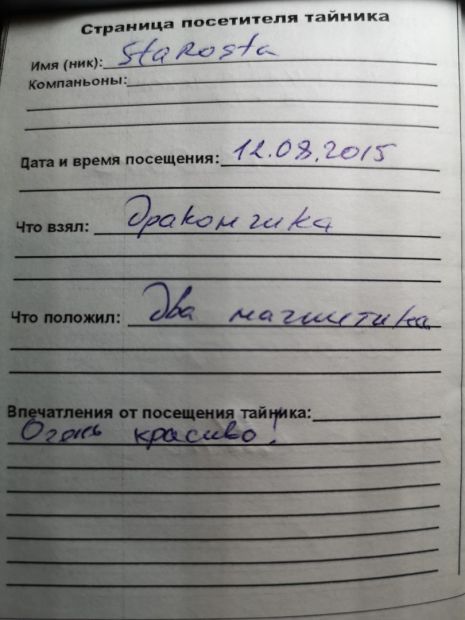 Страница посетителя тайника
Имя (ник): StaRosta
Компаньоны:
Дата и время посещения: 12.08.2015
Что взял: Дракончика
Что положил: Два магнитика
Впечатления от посещения тайника:
Очень красиво!